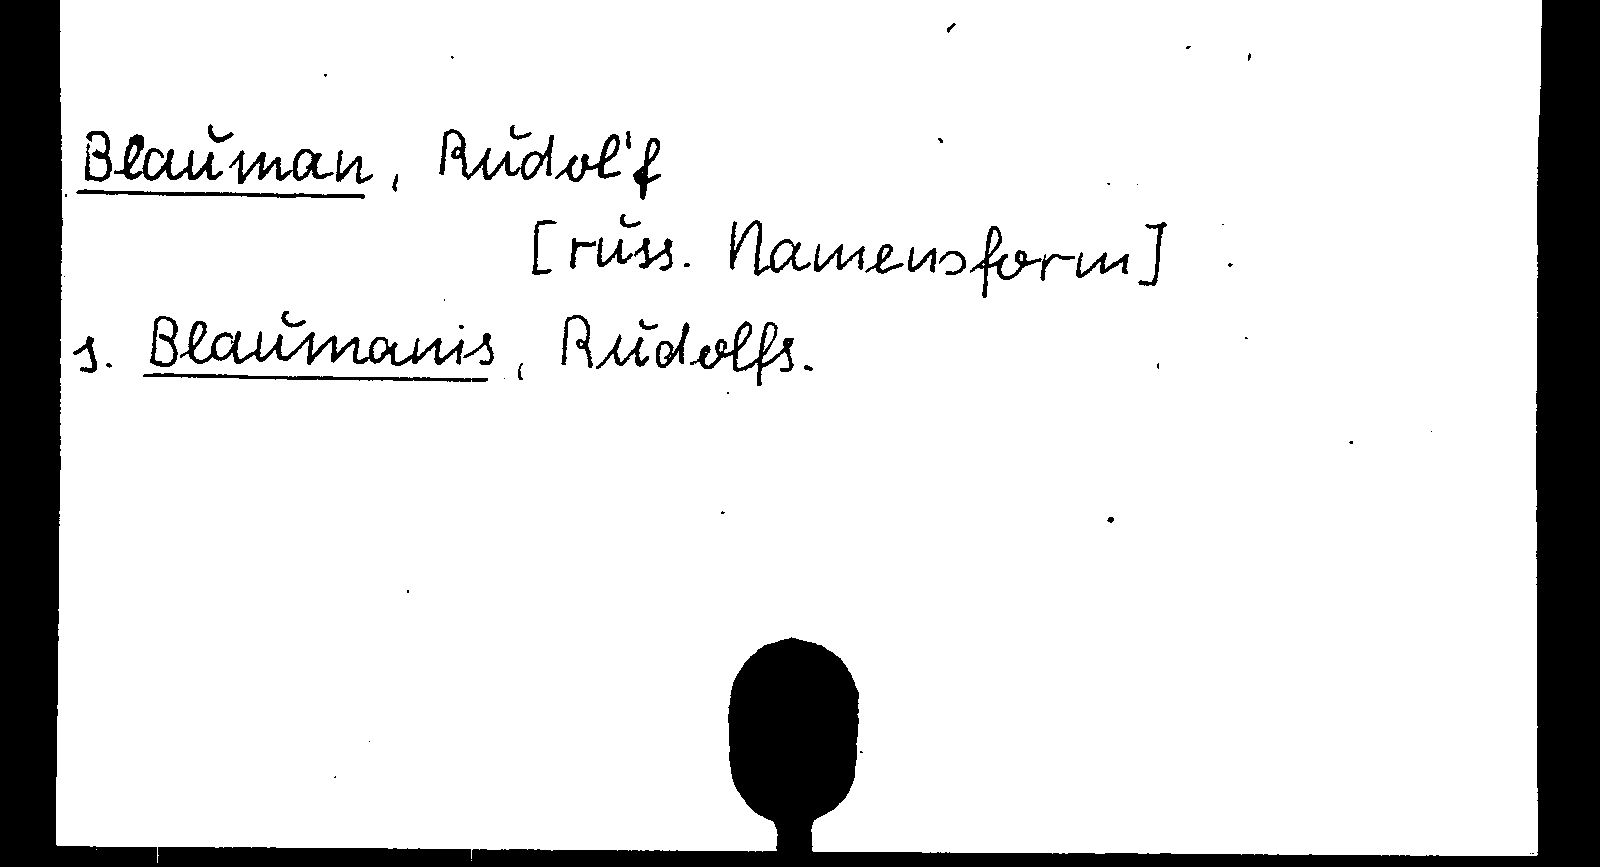 Blauman, Rudol'f
[russ. Namensform]
s. Blaumanis, Rudolfs.